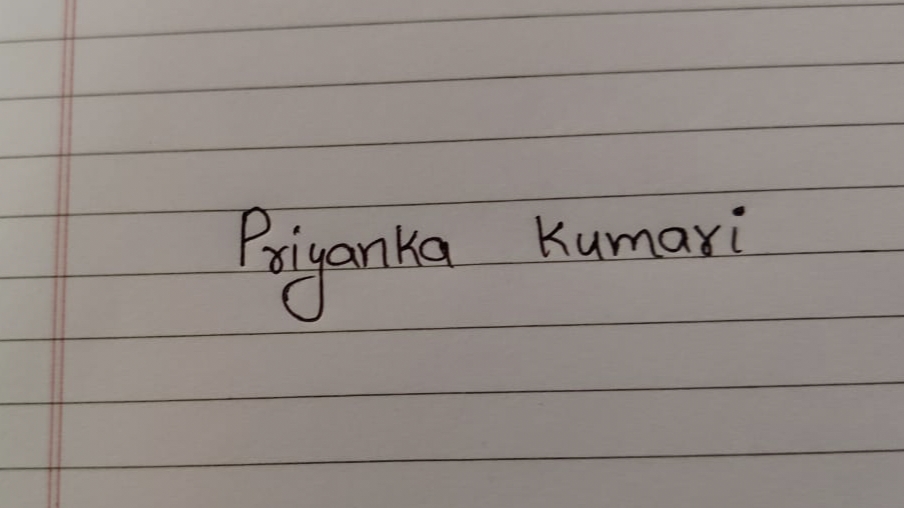 Priyanka Kumari